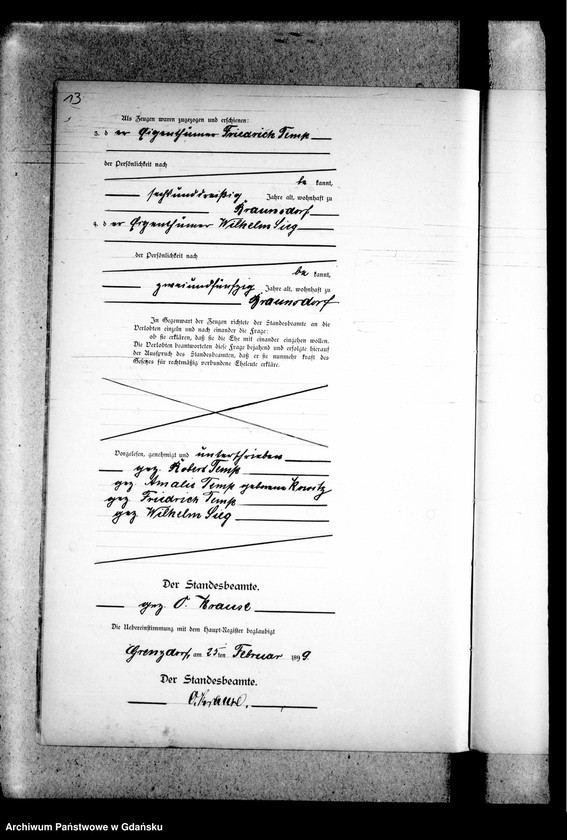 13
Als Zeugen waren zugezogen und erschienen:
3. d er Eigenthümer Friedrich Temp
der Persönlichkeit nach
be kannt,
sechsunddreißig Jahre alt, wohnhaft zu
Braunsdorf
4. d er Eigenthümer Wilhelm Sieg
der Persönlichkeit nach
be kannt,
zweiundfünfzig Jahre alt, wohnhaft zu
Braunsdorf
In Gegenwart der Zeugen richtete der Standesbeamte an die
Verlobten einzeln und nach einander die Frage:
ob sie erklären, daß sie die Ehe mit einander eingehen wollen.
Die Verlobten beantworteten diese Frage bejahend und erfolgte hierauf
der Ausspruch des Standesbeamten, daß er sie nunmehr kraft des
Gesetzes für rechtmäßig verbundene Eheleute erkläre.
Vorgelesen, genehmigt und unterschrieben
gez. Robert Temp
gez. Amalie Temp geborene
gez. Friedrich Temp
gez. Wilhelm Sieg
Der Standesbeamte.
gez. O. Krause
Die Uebereinstimmung mit dem Haupt-Register beglaubigt
Grenzdorf, am 25ten Februar 1899.
Der Standesbeamte.
O. Krause.
Archiwum Państwowe w Gdańsku